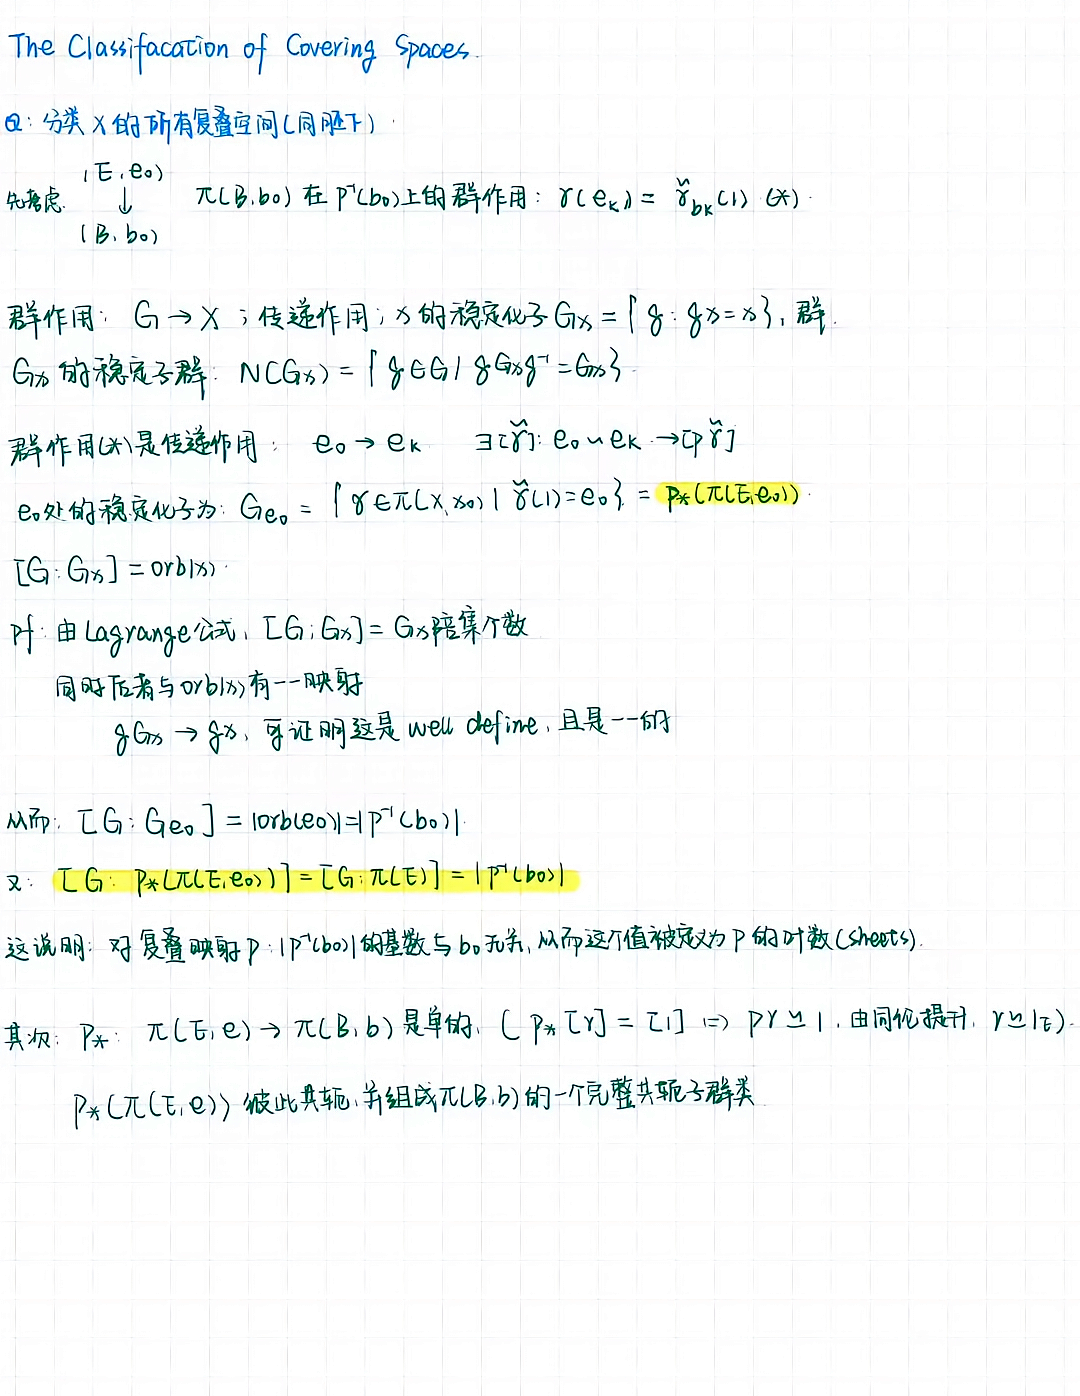 The Classifacation of Covering Spaces.
Q: 分类 X 的所有复叠空间(同胚下).
先考虑. (E, e₀) ↓ (B, b₀) π(B, b₀) 在 p⁻¹(b₀)上的群作用: γ(eₖ) = γ̃_bₖ(1) (*).
群作用: G → X ; 传递作用; x 的稳定化子 Gₓ = { g : gx = x }, 群.
Gₓ 的稳定子群: N(Gₓ) = { g ∈ G | g Gₓ g⁻¹ = Gₓ }.
群作用(*)是传递作用: e₀ → eₖ ∃[γ̃]: e₀ ~ eₖ → [pγ̃]
e₀处的稳定化子为: G_e₀ = { γ ∈ π(X, x₀) | γ̃(1) = e₀ } = p∗(π(E, e₀)).
[G : Gₓ] = orb(x).
pf: 由 Lagrange 公式, [G : Gₓ] = Gₓ陪集个数
同时后者与 orb(x) 有一一映射
gGₓ → gx, 可证明这是 well define, 且是一一的
从而: [G : G_e₀] = |orb(e₀)| = |p⁻¹(b₀)|.
又: [G : p∗(π(E, e₀))] = [G : π(E)] = |p⁻¹(b₀)|
这说明: 对复叠映射 p : |p⁻¹(b₀)| 的基数与 b₀ 无关, 从而这个值被定义为 p 的叶数(sheets).
其次: p∗: π(E, e) → π(B, b) 是单的, ( p∗[γ] = [1] ⇒ pγ ≃ 1, 由同伦提升, γ ≃ 1_E).
p∗(π(E, e)) 彼此共轭, 并组成π(B, b) 的一个完整共轭子群类